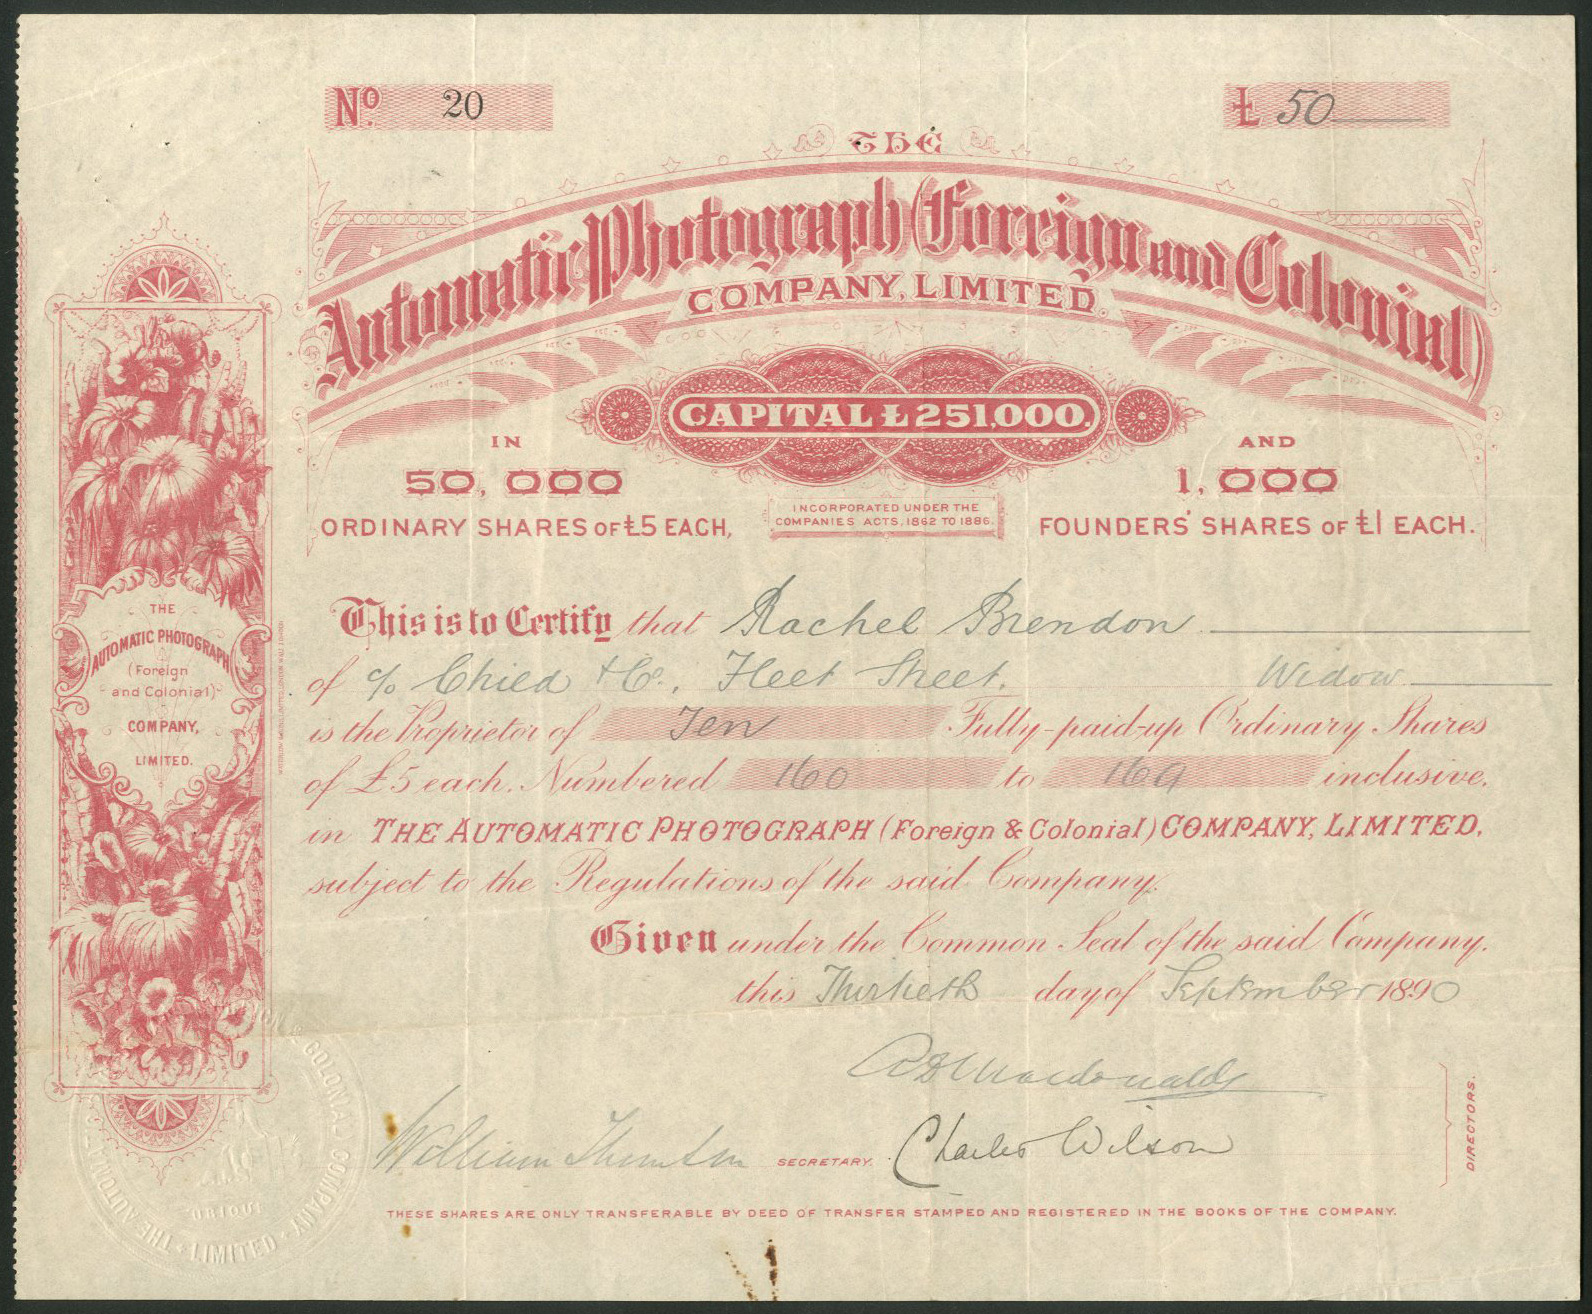 No. 20
£ 50
THE
Automatic Photograph (Foreign and Colonial)
COMPANY, LIMITED.
CAPITAL £251,000.
IN
50,000
ORDINARY SHARES OF £5 EACH,
INCORPORATED UNDER THE
COMPANIES ACTS, 1862 TO 1886.
AND
1,000
FOUNDERS' SHARES OF £1 EACH.
This is to Certify that Rachel Brendon
of c/o Child & Co., Fleet Street, Widow
is the Proprietor of Ten Fully-paid-up Ordinary Shares
of £5 each, Numbered 160 to 169 inclusive,
in THE AUTOMATIC PHOTOGRAPH (Foreign & Colonial) COMPANY, LIMITED,
subject to the Regulations of the said Company.
Given under the Common Seal of the said Company,
this Thirtieth day of September 1890
Macdonald
William SECRETARY. Charles Wilson
DIRECTORS.
THESE SHARES ARE ONLY TRANSFERABLE BY DEED OF TRANSFER STAMPED AND REGISTERED IN THE BOOKS OF THE COMPANY.
THE
AUTOMATIC PHOTOGRAPH
(Foreign
and Colonial)
COMPANY,
LIMITED.
THE AUTOM COLONIAL) COMPANY LIMITED
UBIQUE